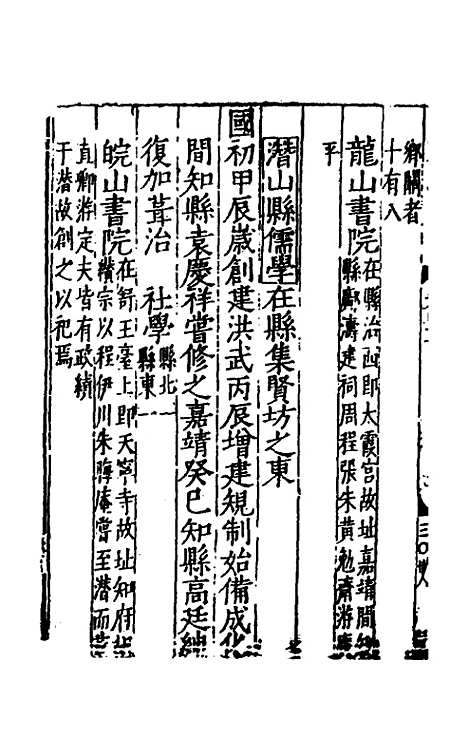 鄉闈者
十有八
龍山書院在縣治西即大霞宮故址嘉靖間知
縣鄭濤建祠周程張朱黃勉齋游廌
平
潛山縣儒學在縣集賢坊之東
國初甲辰歲創建洪武丙辰增建規制始備成化
間知縣袁慶祥嘗修之嘉靖癸巳知縣高廷
復加葺治 社學縣北一
縣東一
皖山書院在舒王臺上即天寧寺故址知府
纘宗以程伊川朱晦庵嘗至潛而
直卿游定夫皆有政績
于潛故創之以祀焉